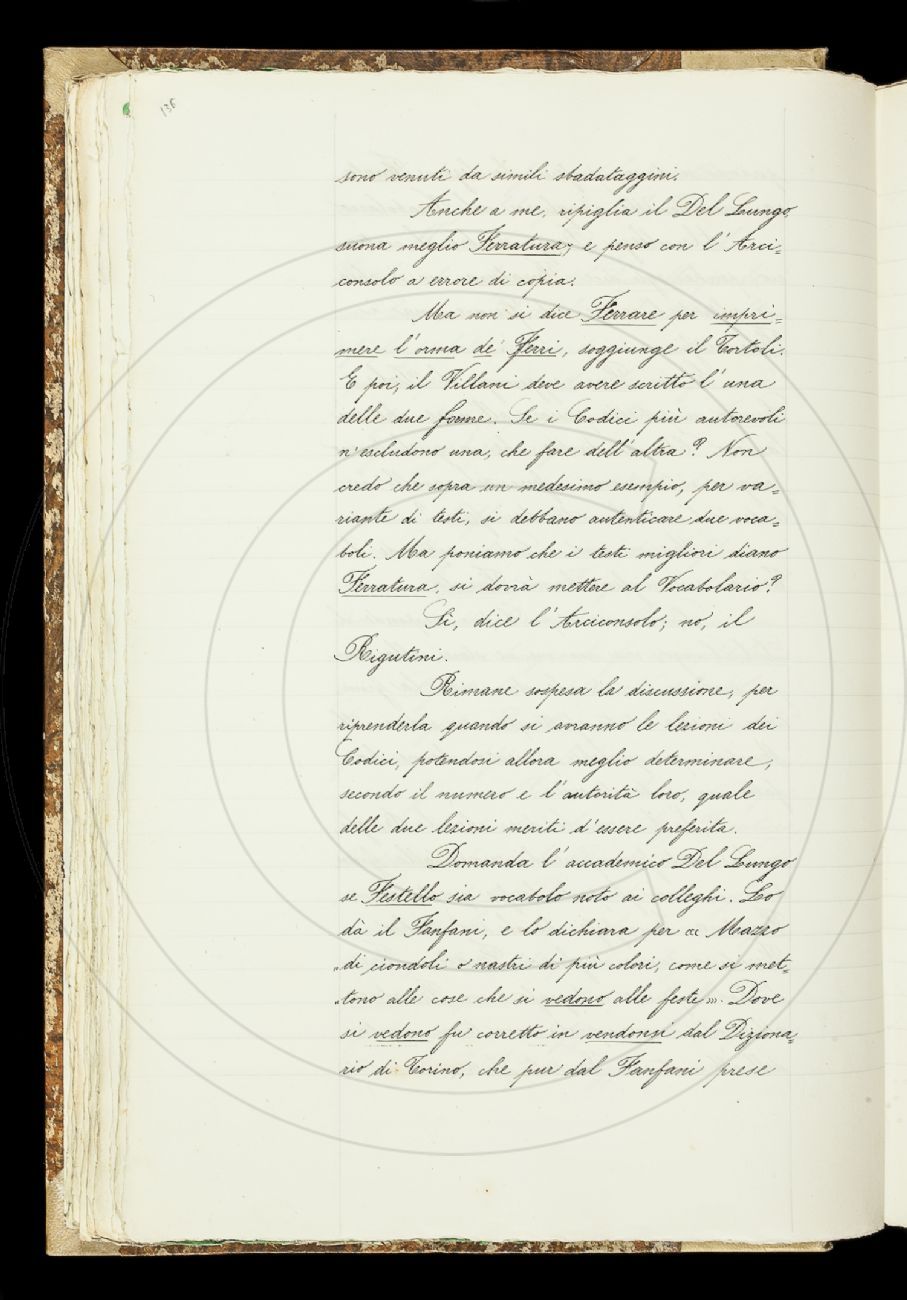 136
sono venuti da simili sbadataggini.
Anche a me, ripiglia il Del Lungo,
suona meglio Ferratura; e penso con l'Arci=
consolo a errore di copia.
Ma non si dice Ferrare per impri=
mere l'orma de' Ferri, soggiunge il Tortoli.
E poi, il Villani deve avere scritto l'una
delle due forme. Se i Codici più autorevoli
n'escludono una, che fare dell'altra? Non
credo che sopra un medesimo esempio, per va=
riante di testi, si debbano autenticare due voca=
boli. Ma poniamo che i testi migliori diano
Ferratura, si dovrà mettere al Vocabolario?
Sì, dice l'Arciconsolo; no, il
Rigutini.
Rimane sospesa la discussione, per
riprenderla quando si avranno le lezioni dei
Codici, potendosi allora meglio determinare,
secondo il numero e l'autorità loro, quale
delle due lezioni meriti d'essere preferita.
Domanda l'accademico Del Lungo
se Festello sia vocabolo noto ai colleghi. Lo
dà il Fanfani, e lo dichiara per « Mazzo
„di ciondoli o nastri di più colori, come si met=
„tono alle cose che si vedono alle feste ». Dove
si vedono fu corretto in vendonsi dal Diziona=
rio di Torino, che pur dal Fanfani prese